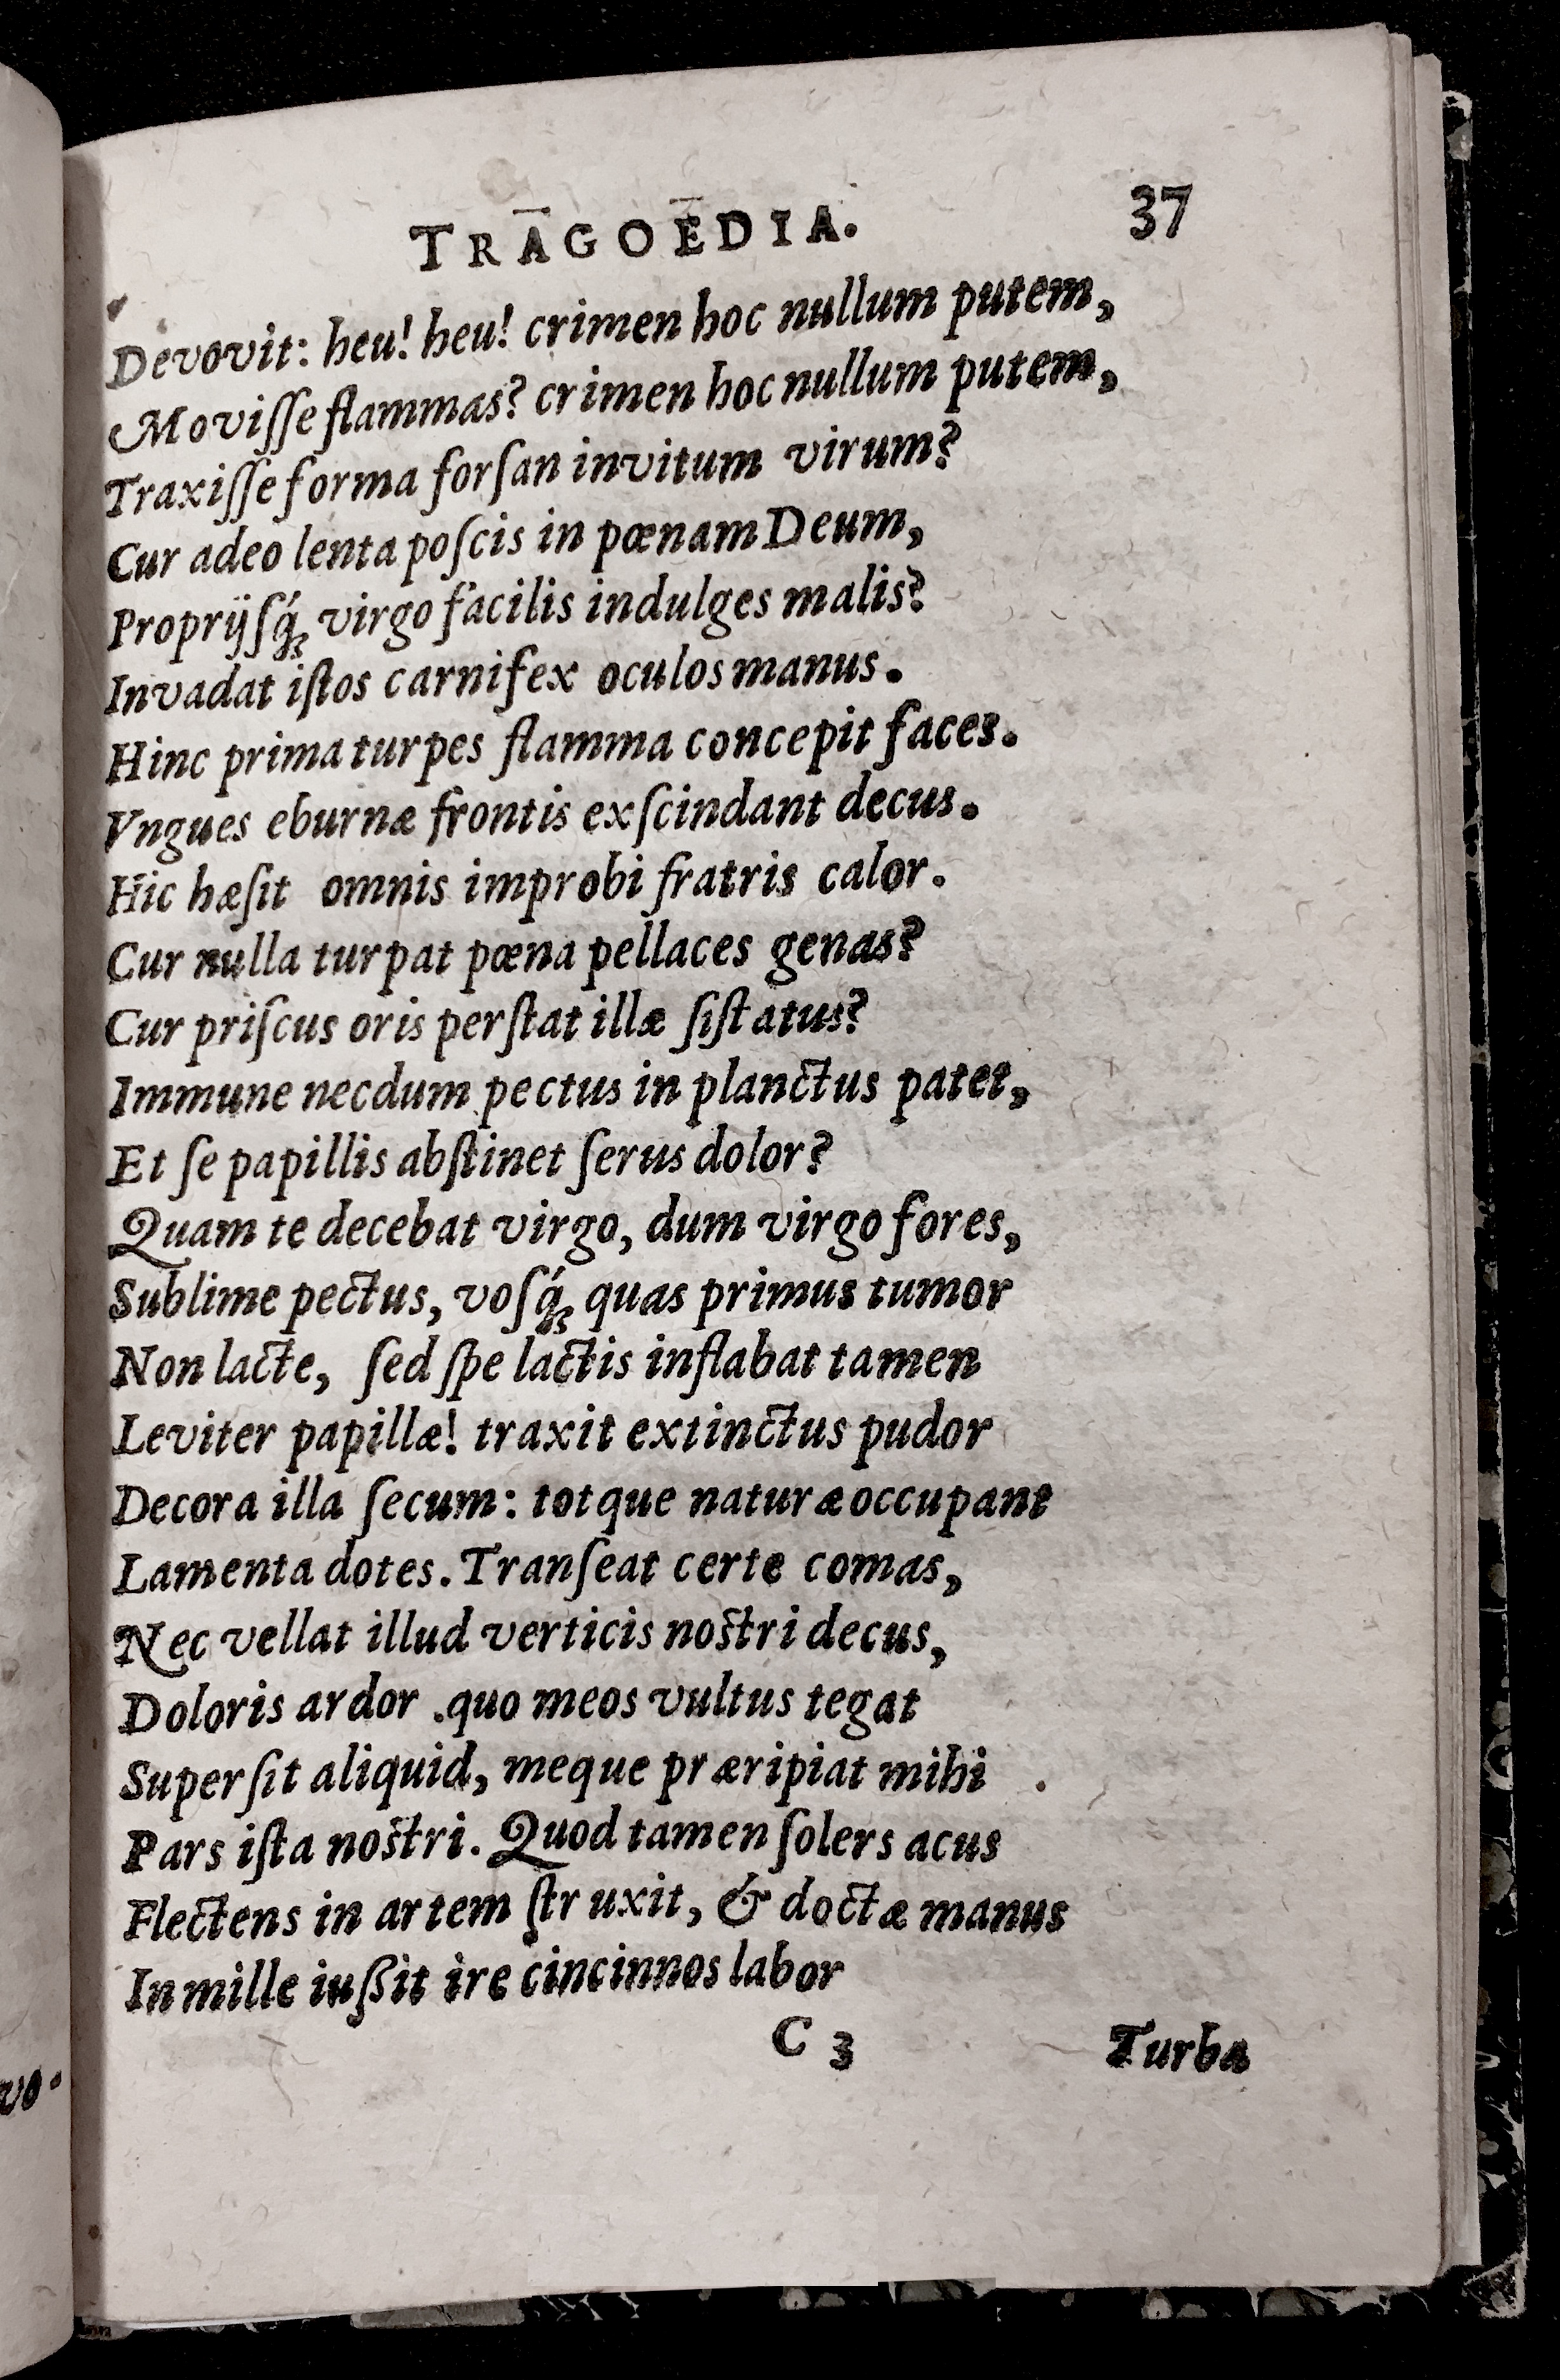 TRAGOEDIA. 37
Devovit: heu! heu! crimen hoc nullum putem,
Moviſſe flammas? crimen hoc nullum putem,
Traxiſſe forma forſan invitum virum?
Cur adeo lenta poſcis in pœnam Deum,
Proprijſq́ꝫ virgo facilis indulges malis?
Invadat iſtos carnifex oculos manus.
Hinc prima turpes flamma concepit faces.
Vngues eburnæ frontis exſcindant decus.
Hic hæſit omnis improbi fratris calor.
Cur nulla turpat pœna pellaces genas?
Cur priſcus oris perſtat illæſi ſtatus?
Immune necdum pectus in planctus patet,
Et ſe papillis abſtinet ſerus dolor?
Quam te decebat virgo, dum virgo fores,
Sublime pectus, voſq́ꝫ quas primus tumor
Non lacte, ſed ſpe lactis inflabat tamen
Leviter papillæ! traxit extinctus pudor
Decora illa ſecum: totque naturæ occupant
Lamenta dotes. Tranſeat certe comas,
Nec vellat illud verticis noſtri decus,
Doloris ardor .quo meos vultus tegat
Superſit aliquid, meque præripiat mihi
Pars iſta noſtri. Quod tamen ſolers acus
Flectens in artem ſtruxit, & doctæ manus
In mille iußit ire cincinnos labor
C 3 Turba
vo